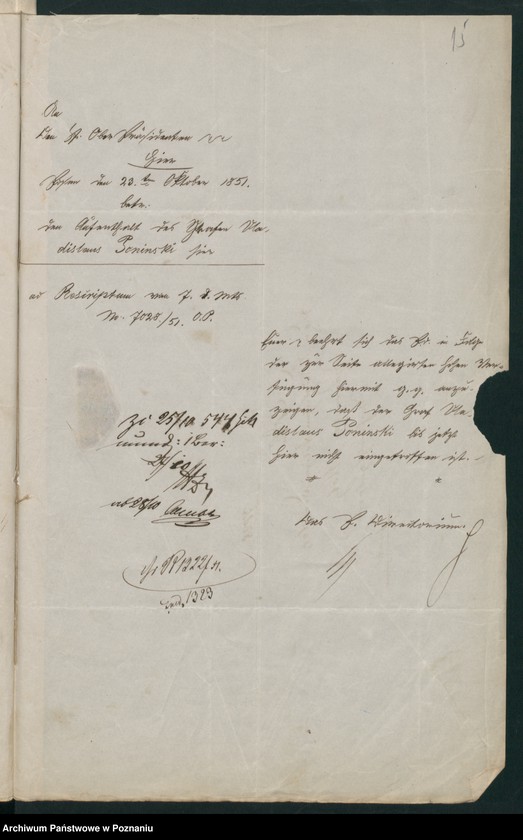 15
An
den H. Ober Präsidenten
Hier
Posen den 23. ten Oktober 1851.
betr.
den Aufenthalt des Grafen Vla-
dislaus Poninski hier
ad Rescriptum vom 7. d. Mts
No. 7028/51. O.P.
beehrt sich das in Folge
der zur Seite allegirten hohen Ver-
fügung hiermit g. g. anzu-
zeigen, daß der Graf Vla-
dislaus Poninski bis jetzt
hier nicht eingetroffen ist.
zu 25/10
mund:
ab 28/10
1222/51.
1323
Das P. Directorium.
Archiwum Państwowe w Poznaniu